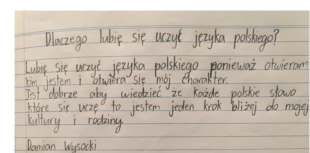 Dlaczego lubię się uczyć języka polskiego?
Lubię się uczyć języka polskiego ponieważ otwieram
kim jestem i otwiera się mój charakter.
Jest dobrze aby wiedzieć że każde polskie słowo
które się uczę to jestem jeden krok bliżej do mojej
kultury i rodziny.
Damian Wysocki